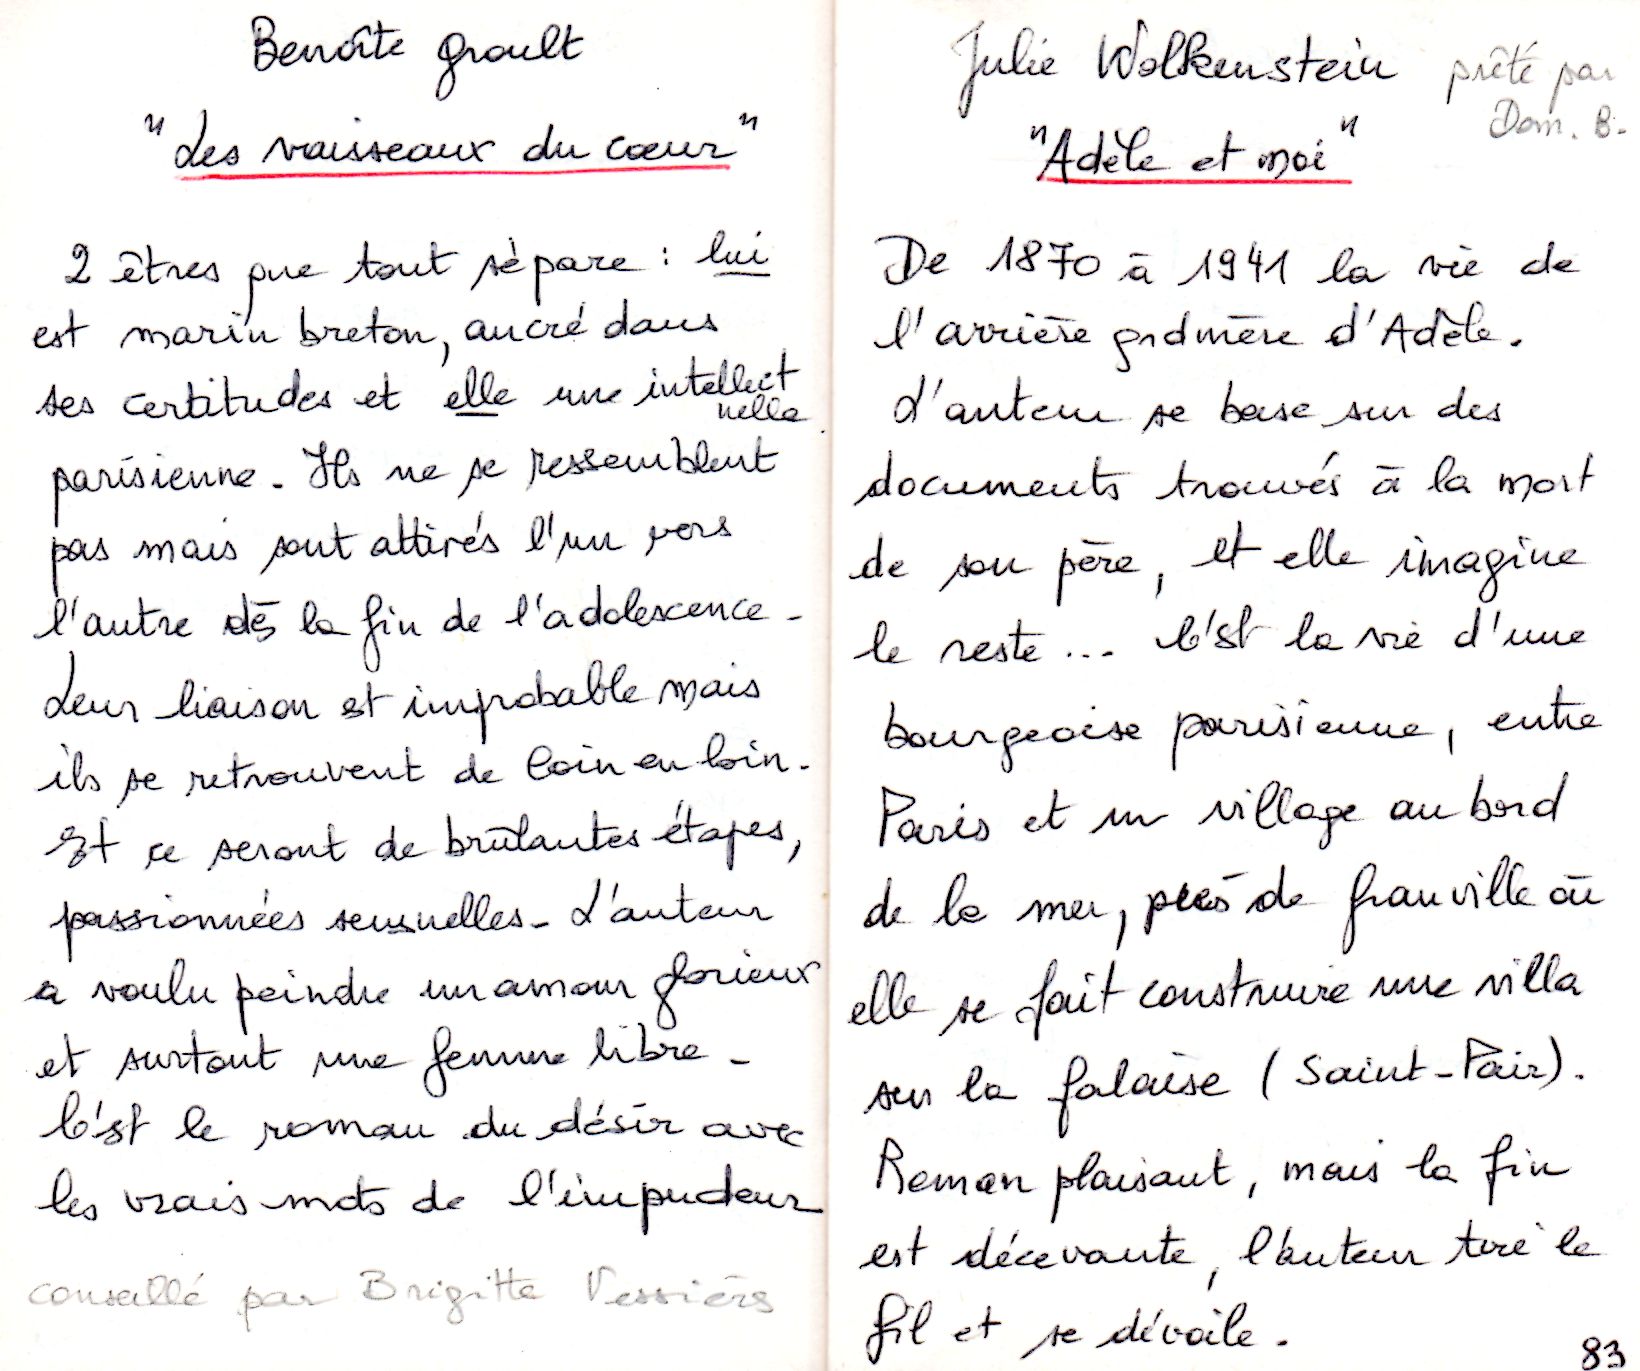 Benoîte Groult
"Les vaisseaux du cœur"
2 êtres que tout sépare : lui
est marin breton, ancré dans
ses certitudes et elle une intellect
uelle
parisienne. Ils ne se ressemblent
pas mais sont attirés l'un vers
l'autre dès la fin de l'adolescence -
Leur liaison est improbable mais
ils se retrouvent de loin en loin.
Et ce seront de brûlantes étapes,
passionnées sensuelles - L'auteur
a voulu peindre un amour glorieux
et surtout une femme libre -
C'est le roman du désir avec
les vrais mots de l'impudeur
conseillé par Brigitte Vessière
Julie Wolkenstein prêté par
Dom. B.
"Adèle et moi"
De 1870 à 1941 la vie de
l'arrière grdmère d'Adèle.
L'auteur se base sur des
documents trouvés à la mort
de son père, et elle imagine
le reste... C'est la vie d'une
bourgeoise parisienne, entre
Paris et un village au bord
de la mer, près de Granville où
elle se fait construire une villa
sur la falaise (Saint-Pair).
Roman plaisant, mais la fin
est décevante, l'auteur tire le
fil et se dévoile.
83